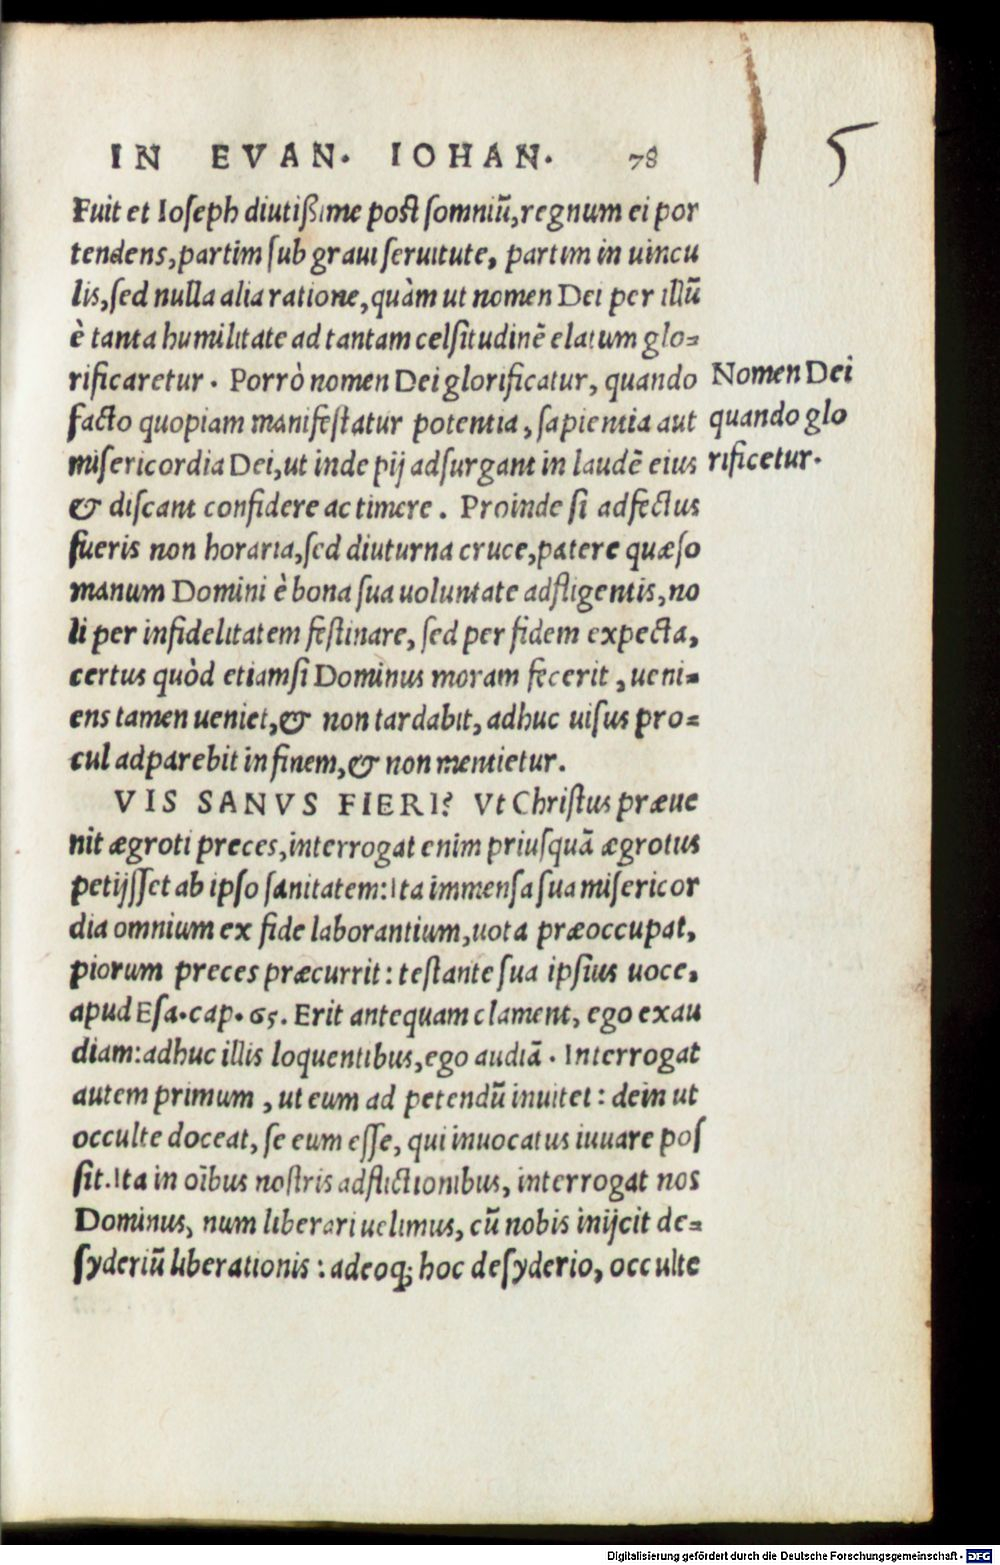 IN EVAN. IOHAN. 78
5
Fuit et Ioseph diutißime post somniũ, regnum ei por
tendens, partim sub graui seruitute, partim in uincu
lis, sed nulla alia ratione, quàm ut nomen Dei per illũ
è tanta humilitate ad tantam celsitudinẽ elatum glo=
rificaretur. Porrò nomen Dei glorificatur, quando
facto quopiam manifestatur potentia, sapientia aut
misericordia Dei, ut inde pij adsurgant in laudẽ eius
& discant confidere ac timere. Proinde si adfectus
fueris non horaria, sed diuturna cruce, patere quæso
manum Domini è bona sua uoluntate adfligentis, no
li per infidelitatem festinare, sed per fidem expecta,
certus quòd etiamsi Dominus moram fecerit, ueni=
ens tamen ueniet, & non tardabit, adhuc uisus pro=
cul adparebit in finem, & non mentietur.
Nomen Dei
quando glo
rificetur.
VIS SANVS FIERI? Vt Christus præue
nit ægroti preces, interrogat enim priusquã ægrotus
petijsset ab ipso sanitatem: Ita immensa sua misericor
dia omnium ex fide laborantium, uota præoccupat,
piorum preces præcurrit: testante sua ipsius uoce,
apud Esa. cap. 65. Erit antequam clament, ego exau
diam: adhuc illis loquentibus, ego audiã. Interrogat
autem primum, ut eum ad petendũ inuitet: dein ut
occulte doceat, se eum esse, qui inuocatus iuuare pos
sit. Ita in oĩbus nostris adflictionibus, interrogat nos
Dominus, num liberari uelimus, cũ nobis inijcit de=
syderiũ liberationis: adeoq; hoc desyderio, occulte
Digitalisierung gefördert durch die Deutsche Forschungsgemeinschaft - DFG